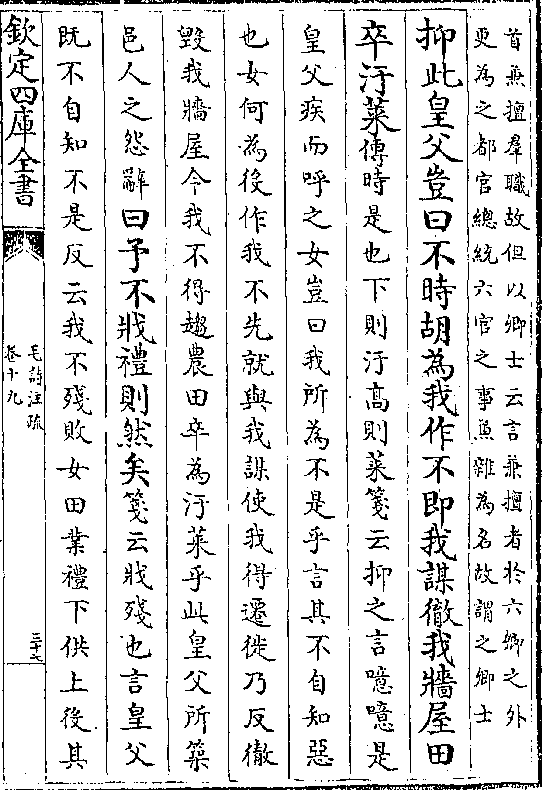 首兼擅羣職故但以卿士云言兼擅者於六卿之外
更為之都官總統六官之事兼雜為名故謂之卿士
抑此皇父豈曰不時胡為我作不即我謀徹我牆屋田
卒汙萊傳時是也下則汙高則萊箋云抑之言噫噫是
皇父疾而呼之女豈曰我所為不是乎言其不自知惡
也女何為役作我不先就與我謀使我得遷徙乃反徹
毀我牆屋令我不得趨農田卒為汙萊乎此皇父所築
邑人之怨辭曰予不戕禮則然矣箋云戕殘也言皇父
既不自知不是反云我不殘敗女田業禮下供上役其
欽定四庫全書
毛詩注疏
卷十九
三十七